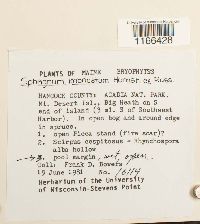 1166428
PLANTS OF MAINE BRYOPHYTES
Sphagnum
HANCOCK COUNTY: ACADIA NAT. PARK.
Mt. Desert Isl. Big Heath on S
end of island (3 mi. S of Southwest
Harbor). In open bog and around edge
in spruce.
1. open Picea stand (fire scar)?
2. Scirpus cespitosus - Rhynchospora
alba hollow
3. pool margin, wet, open.
Coll: Frank D. Bowers
19 June 1981 No.
Herbarium of the University
of Wisconsin-Stevens Point